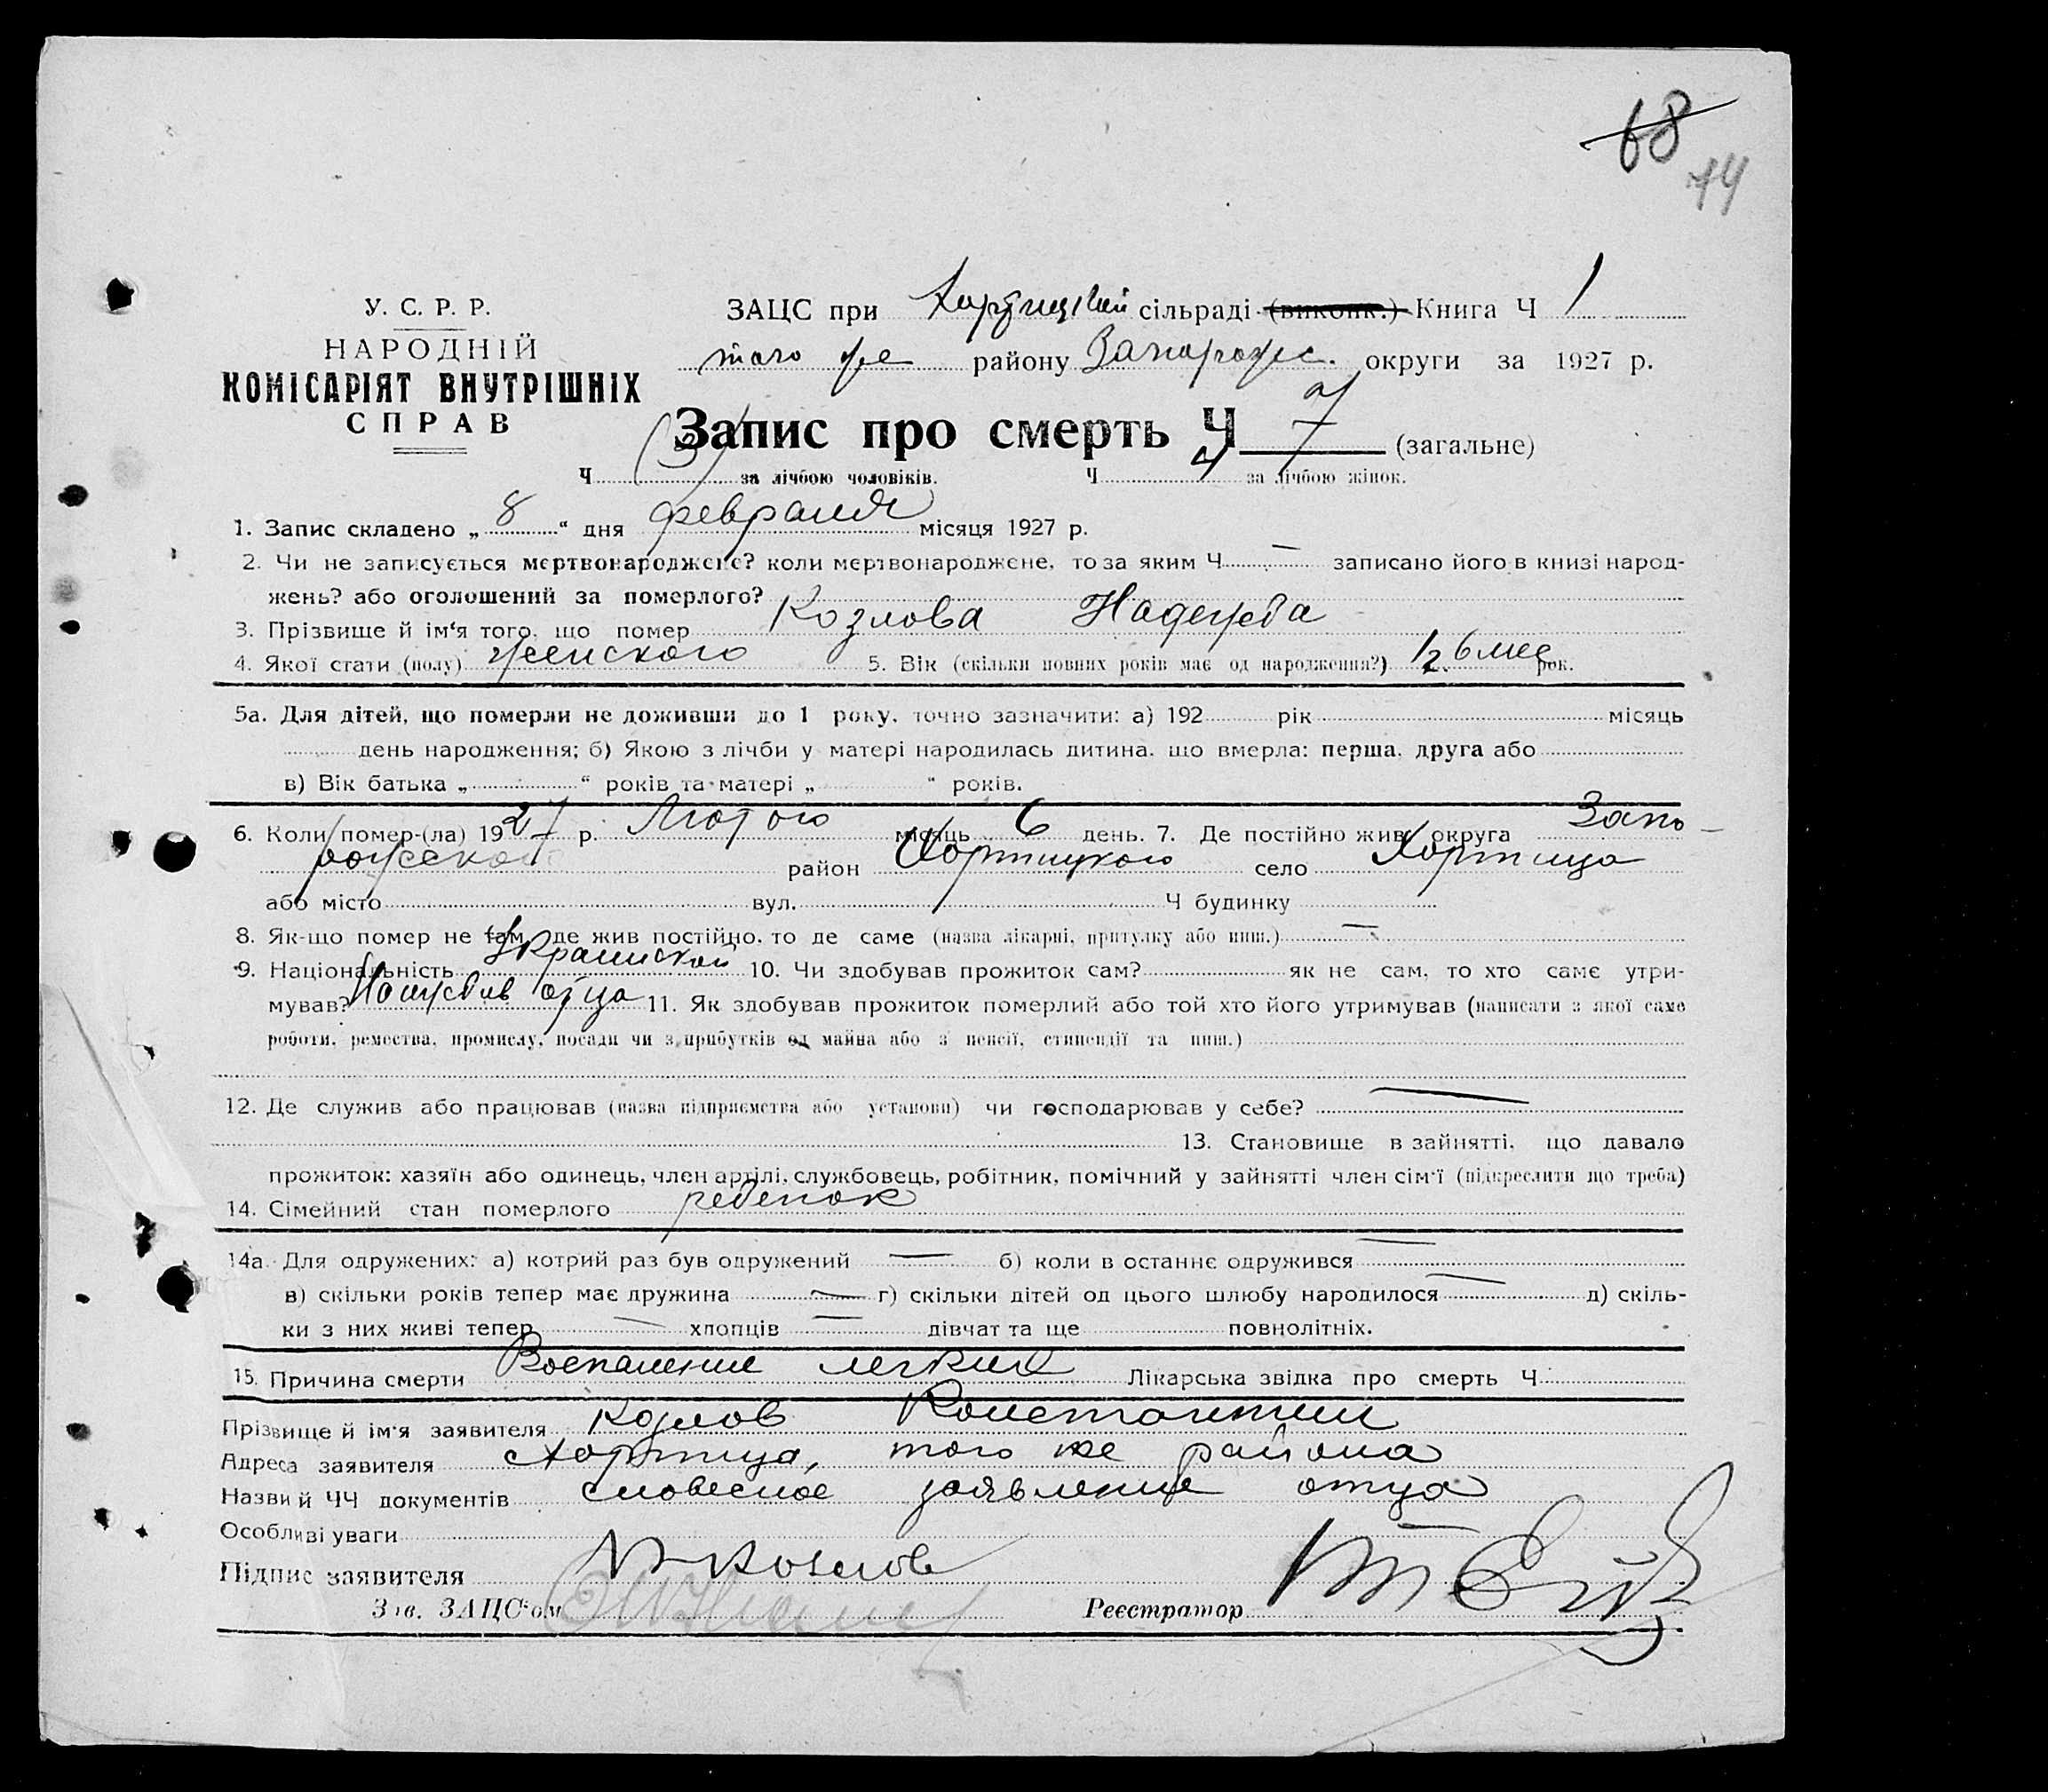 68
74
У. С. Р. Р.
НАРОДНІЙ
КОМІСАРІЯТ ВНУТРІШНІХ
СПРАВ
ЗАЦС при Хортицкій сільраді (виконк.) Книга Ч 1
того же району Запорожс. округи за 1927 р.
Запис про смерть Ч 7 (загальне)
Ч (3) за лічбою чоловіків. Ч 4 за лічбою жінок.
1. Запис складено „ 8 “ дня февраля місяця 1927 р.
2. Чи не записується мертвонароджене? коли мертвонароджене, то за яким Ч — записано його в книзі народ-
жень? або оголошений за померлого?
3. Прізвище й ім'я того, що помер Козлова Надежда
4. Якої стати (полу) женского 5. Вік (скільки повних років має од народження?) 1/2 6 мес рок.
5а. Для дітей, що померли не доживши до 1 року, точно зазначити: а) 192 рік місяць
день народження; б) Якою з лічби у матері народилась дитина, що вмерла: перша, друга або
в) Вік батька „ “ років та матері „ “ років.
6. Коли помер-(ла) 1927 р. Лютого місяць 6 день. 7. Де постійно жив округа Запо-
рожской район Хортицкого село Хортица
або місто вул. Ч будинку
8. Як-що помер не там, де жив постійно, то де саме (назва лікарні, притулку або инш.) —
9. Національність Украинской 10. Чи здобував прожиток сам? як не сам, то хто саме утри-
мував? отца 11. Як здобував прожиток померлий або той хто його утримував (написати з якої саме
роботи, ремества, промислу, посади чи з прибутків од майна або з пенсії, стипендії та инш.)
12. Де служив або працював (назва підприємства або установи) чи господарював у себе? —
13. Становище в зайнятті, що давало
прожиток: хазяїн або одинець, член артілі, службовець, робітник, помічний у зайнятті член сім'ї (підкреслити що треба)
14. Сімейний стан померлого ребенок
14а. Для одружених: а) котрий раз був одружений — б) коли в останнє одружився —
в) скільки років тепер має дружина — г) скільки дітей од цього шлюбу народилося — д) скіль-
ки з них живі тепер — хлопців — дівчат та ще повнолітніх.
15. Причина смерти Воспаление легких Лікарська звідка про смерть Ч
Прізвище й ім'я заявителя Козлов Константин
Адреса заявителя Хортица, того же района
Назви й ЧЧ документів словесное заявление отца
Особливі уваги
Підпис заявителя Козлов
Зав. ЗАЦС'ом
Реєстратор